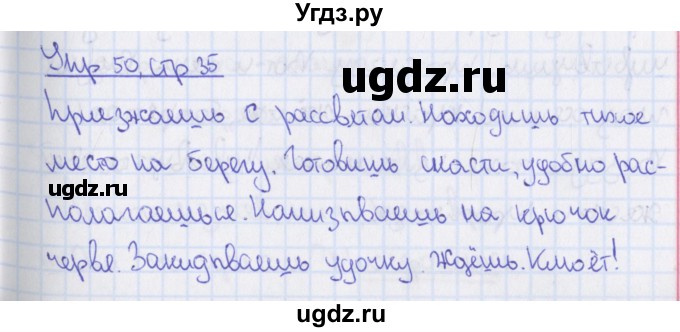 Угдз.ру
Упр 50, стр 35
ugdz.ru
Приезжаешь с рассветом. Находишь тихое
место на берегу. Готовишь снасти, удобно рас-
ugdz.ru
полагаешься. Нанизываешь на крючок
червя. Закидываешь удочку. Ждёшь. Клюёт!
ugdz.ru
ugdz.ru